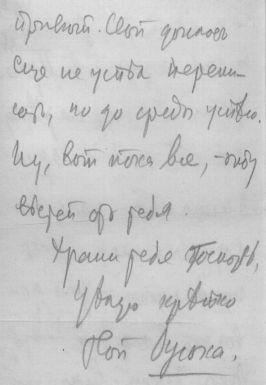 привет. Свой доклад
еще не успела перепи-
сать, но до среды успею.
Ну, вот пока все, – жду
вестей от тебя.
Храни тебя Господь,
Целую крепко
Твой